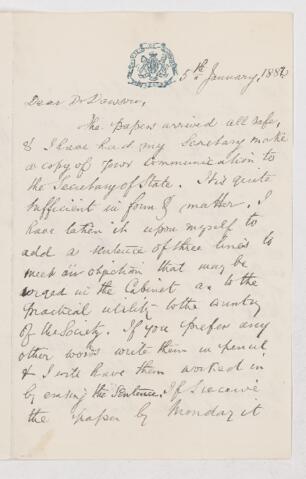 5th January, 1882
Dear Dr Dawson,
The papers arrived all safe,
& I have had my Secretary make
a copy of your communication to
the Secretary of State. It is quite
sufficient in form & matter. I
have taken it upon myself to
add a sentence of three lines to
meet an objection that may be
urged in the Cabinet as to the
practical utility to the country
of the Society. If you prefer any
other words write them in pencil
& I will have them worked in
by erasing the sentence. If I receive
the paper by Monday it